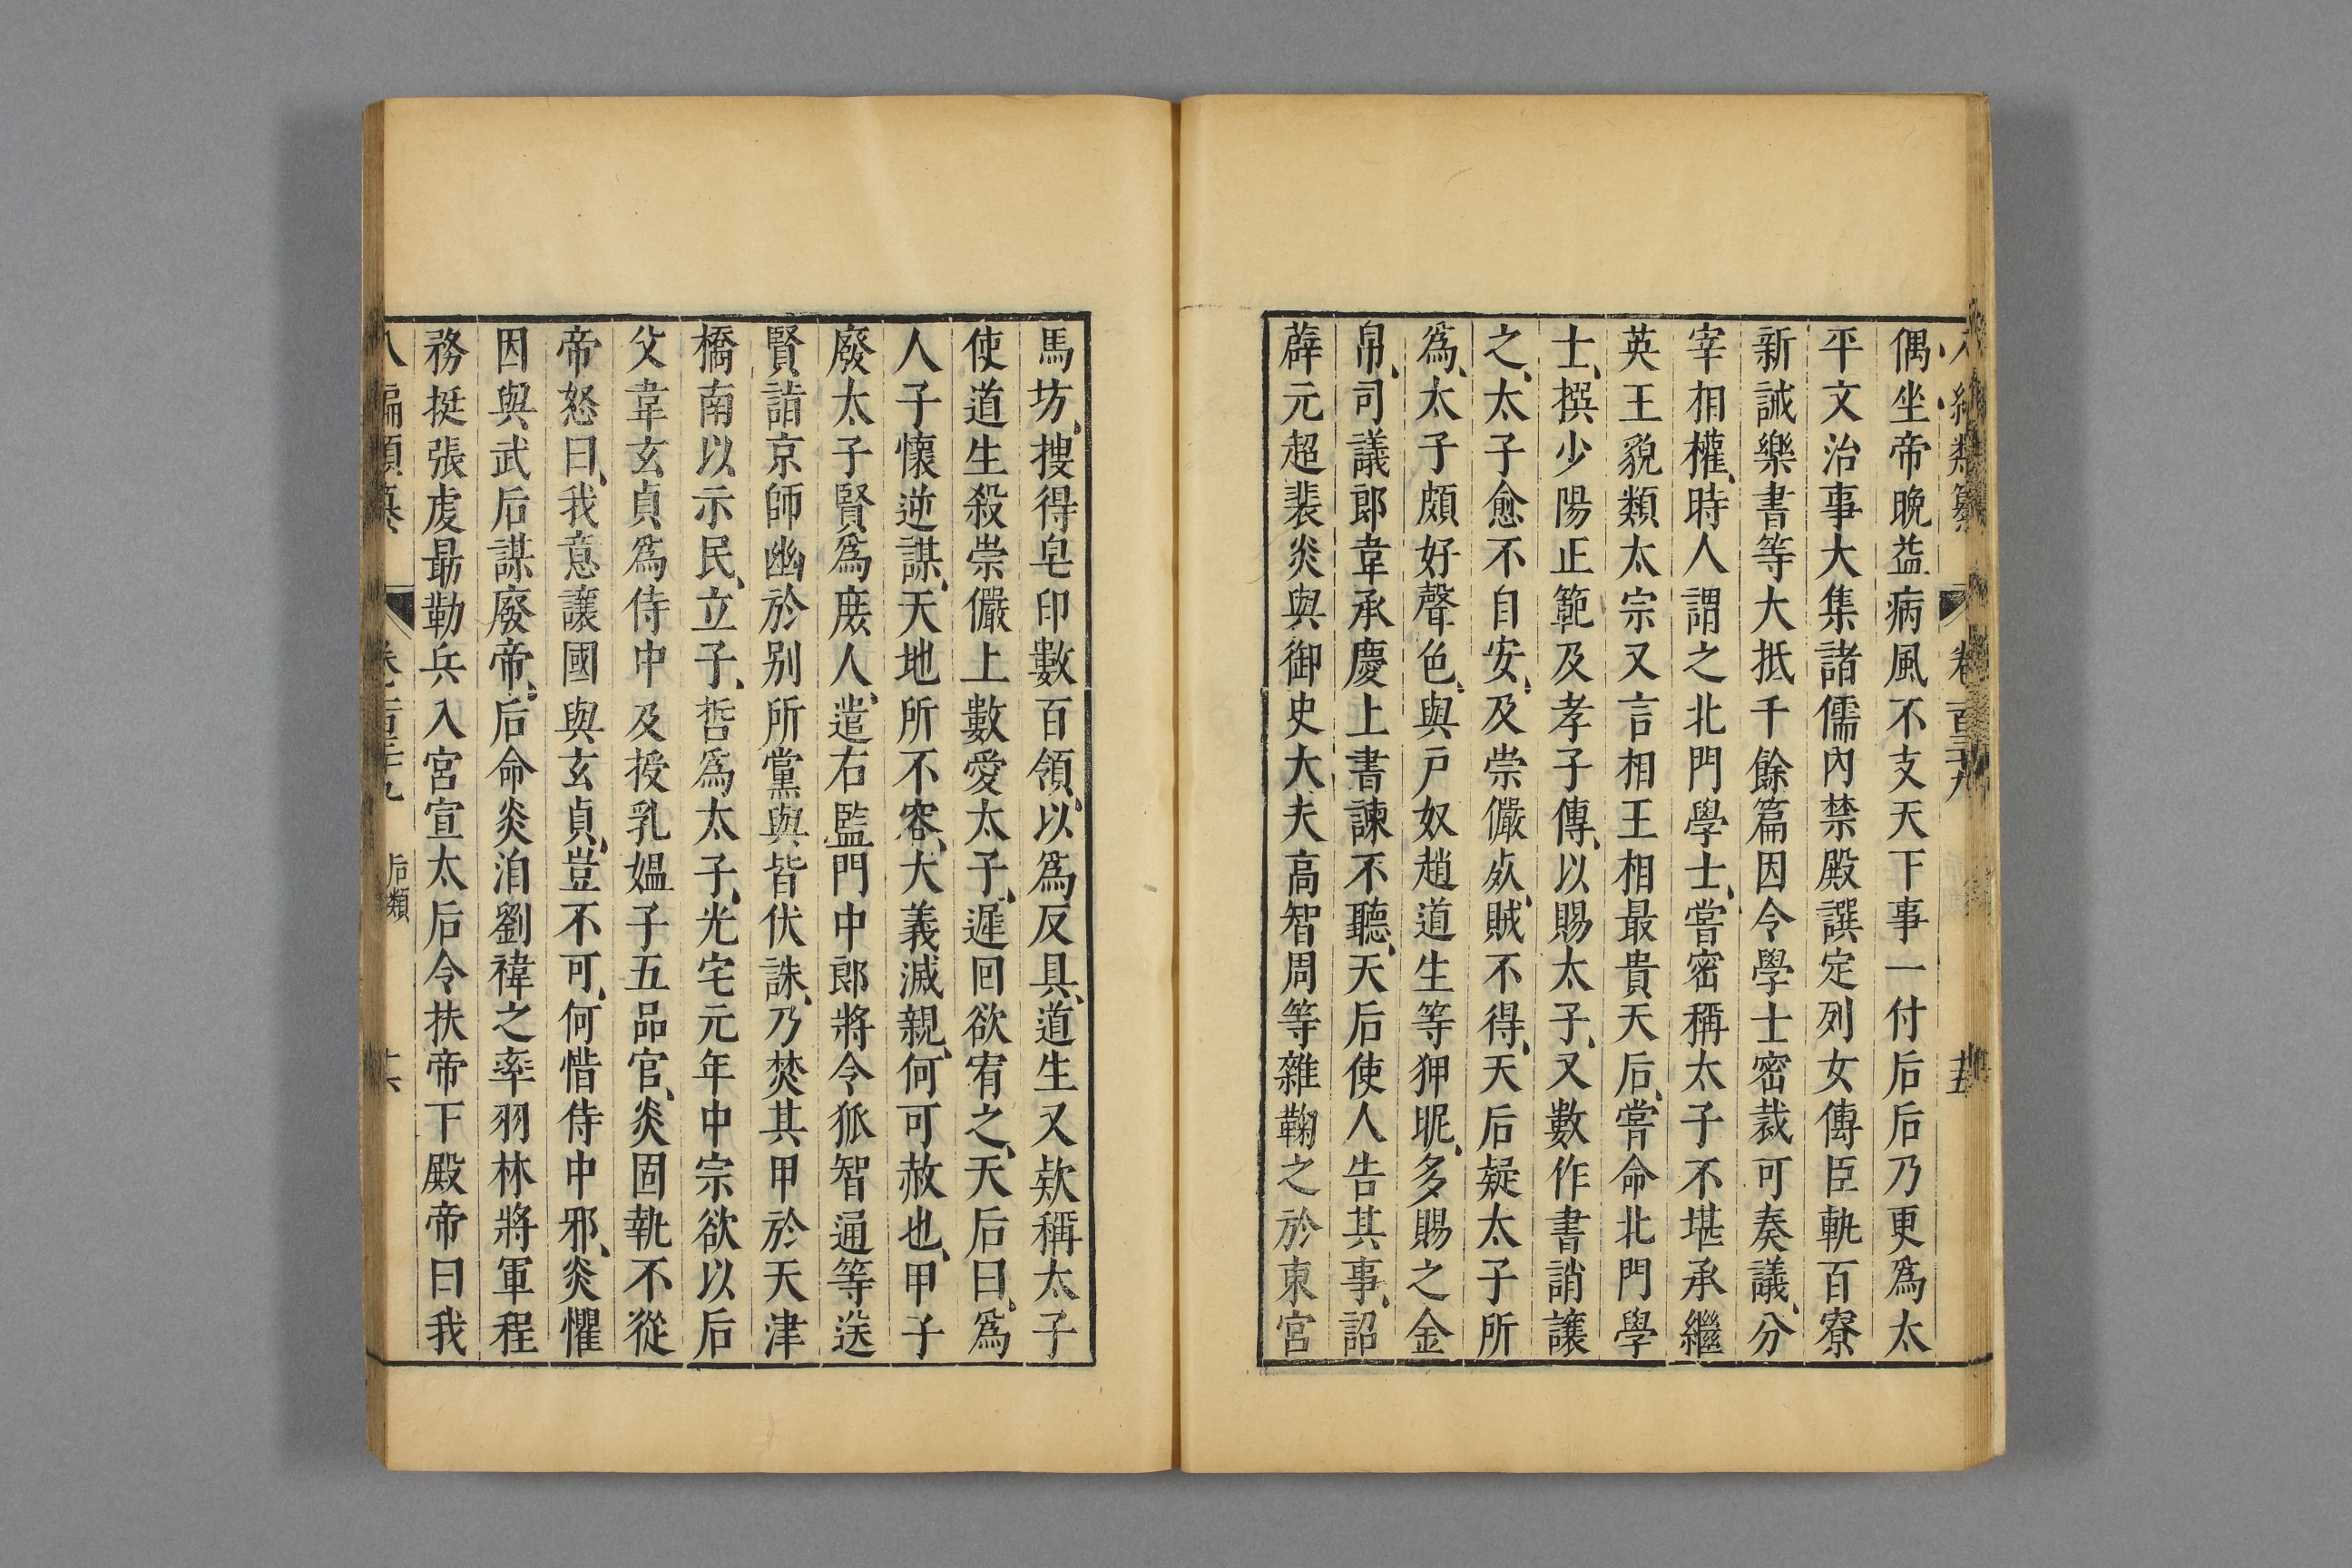 八編類纂 卷一百三十九 十五
偶坐帝晚益病風不支天下事一付后后乃更爲太
平文治事大集諸儒內禁殿譔定列女傳臣軌百寮
新誡樂書等大抵千餘篇因令學士密裁可奏議、分
宰相權、時人謂之北門學士、嘗密稱太子不堪承繼
英王貌類太宗又言相王相最貴天后、嘗命北門學
士、撰少陽正範及孝子傳、以賜太子、又數作書誚讓
之、太子愈不自安、及崇儼死、賊不得、天后疑太子所
爲、太子頗好聲色、與戸奴趙道生等狎昵、多賜之金
帛、司議郎韋承慶上書諫不聽、天后使人告其事、詔
薛元超裴炎與御史大夫高智周等雜鞠之於東宮
馬坊、搜得皂印數百領、以爲反具、道生又款稱太子
使道生殺崇儼上數愛太子、遲回欲宥之、天后曰、爲
人子懷逆謀、天地所不容、大義滅親、何可赦也、甲子
廢太子賢爲庶人、遣右監門中郎將令狐智通等送
賢詣京師幽於别所黨與皆伏誅、乃焚其甲於天津
橋南以示民、立子、哲爲太子、光宅元年中宗欲以后
父韋玄貞爲侍中及授乳媪子五品官、炎固執不從
帝怒曰、我意讓國與玄貞、豈不可、何惜侍中邪、炎懼
因與武后謀廢帝、后命炎洎劉禕之率羽林將軍程
務挺張虔勗勒兵入宮宣太后令扶帝下殿帝曰我
八編類纂 卷一百三十九 后類 十六